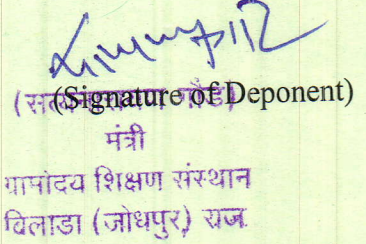 (Signature of Deponent)
मंत्री
ग्रामोदय शिक्षण संस्थान
बिलाडा (जोधपुर) राज.